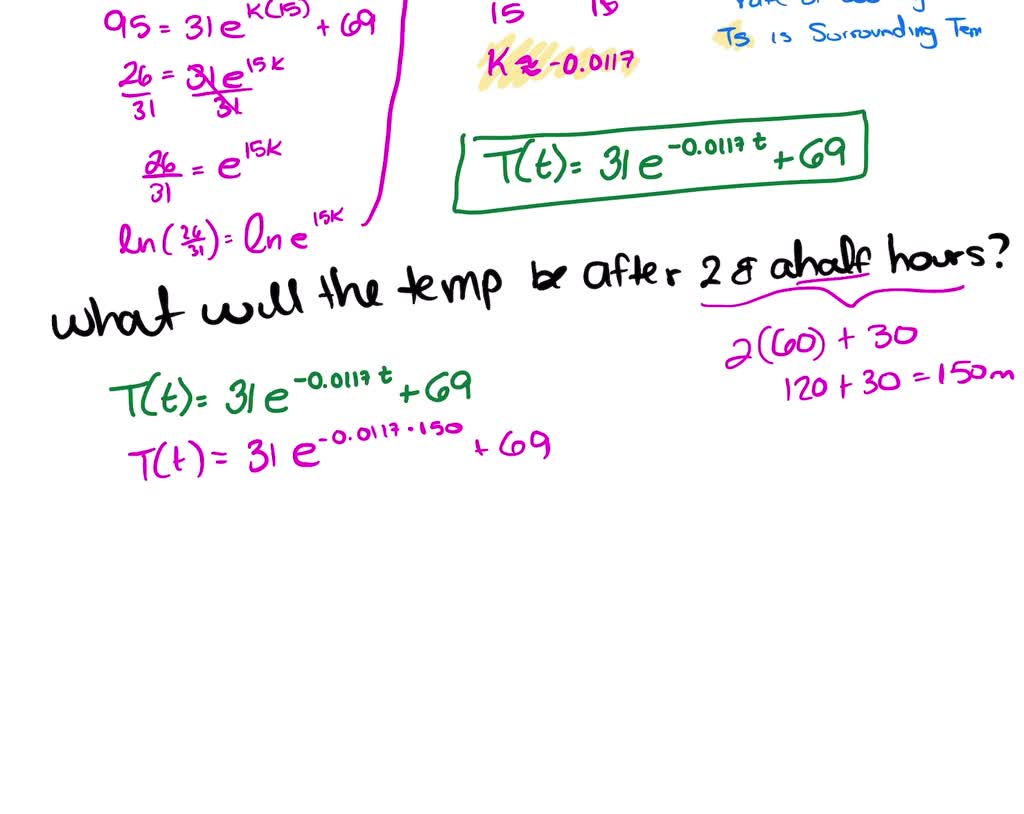 95 = 31e^{K(15)} + 69
26/31 = 31e^{15K}/31
26/31 = e^{15K}
ln(26/31) = ln e^{15K}
15 15
K ≈ -0.0117
Ts is Surrounding Tem
T(t) = 31e^{-0.0117t} + 69
what will the temp be after 2 & a half hours?
2(60) + 30
120 + 30 = 150m
T(t) = 31e^{-0.0117t} + 69
T(t) = 31e^{-0.0117·150} + 69